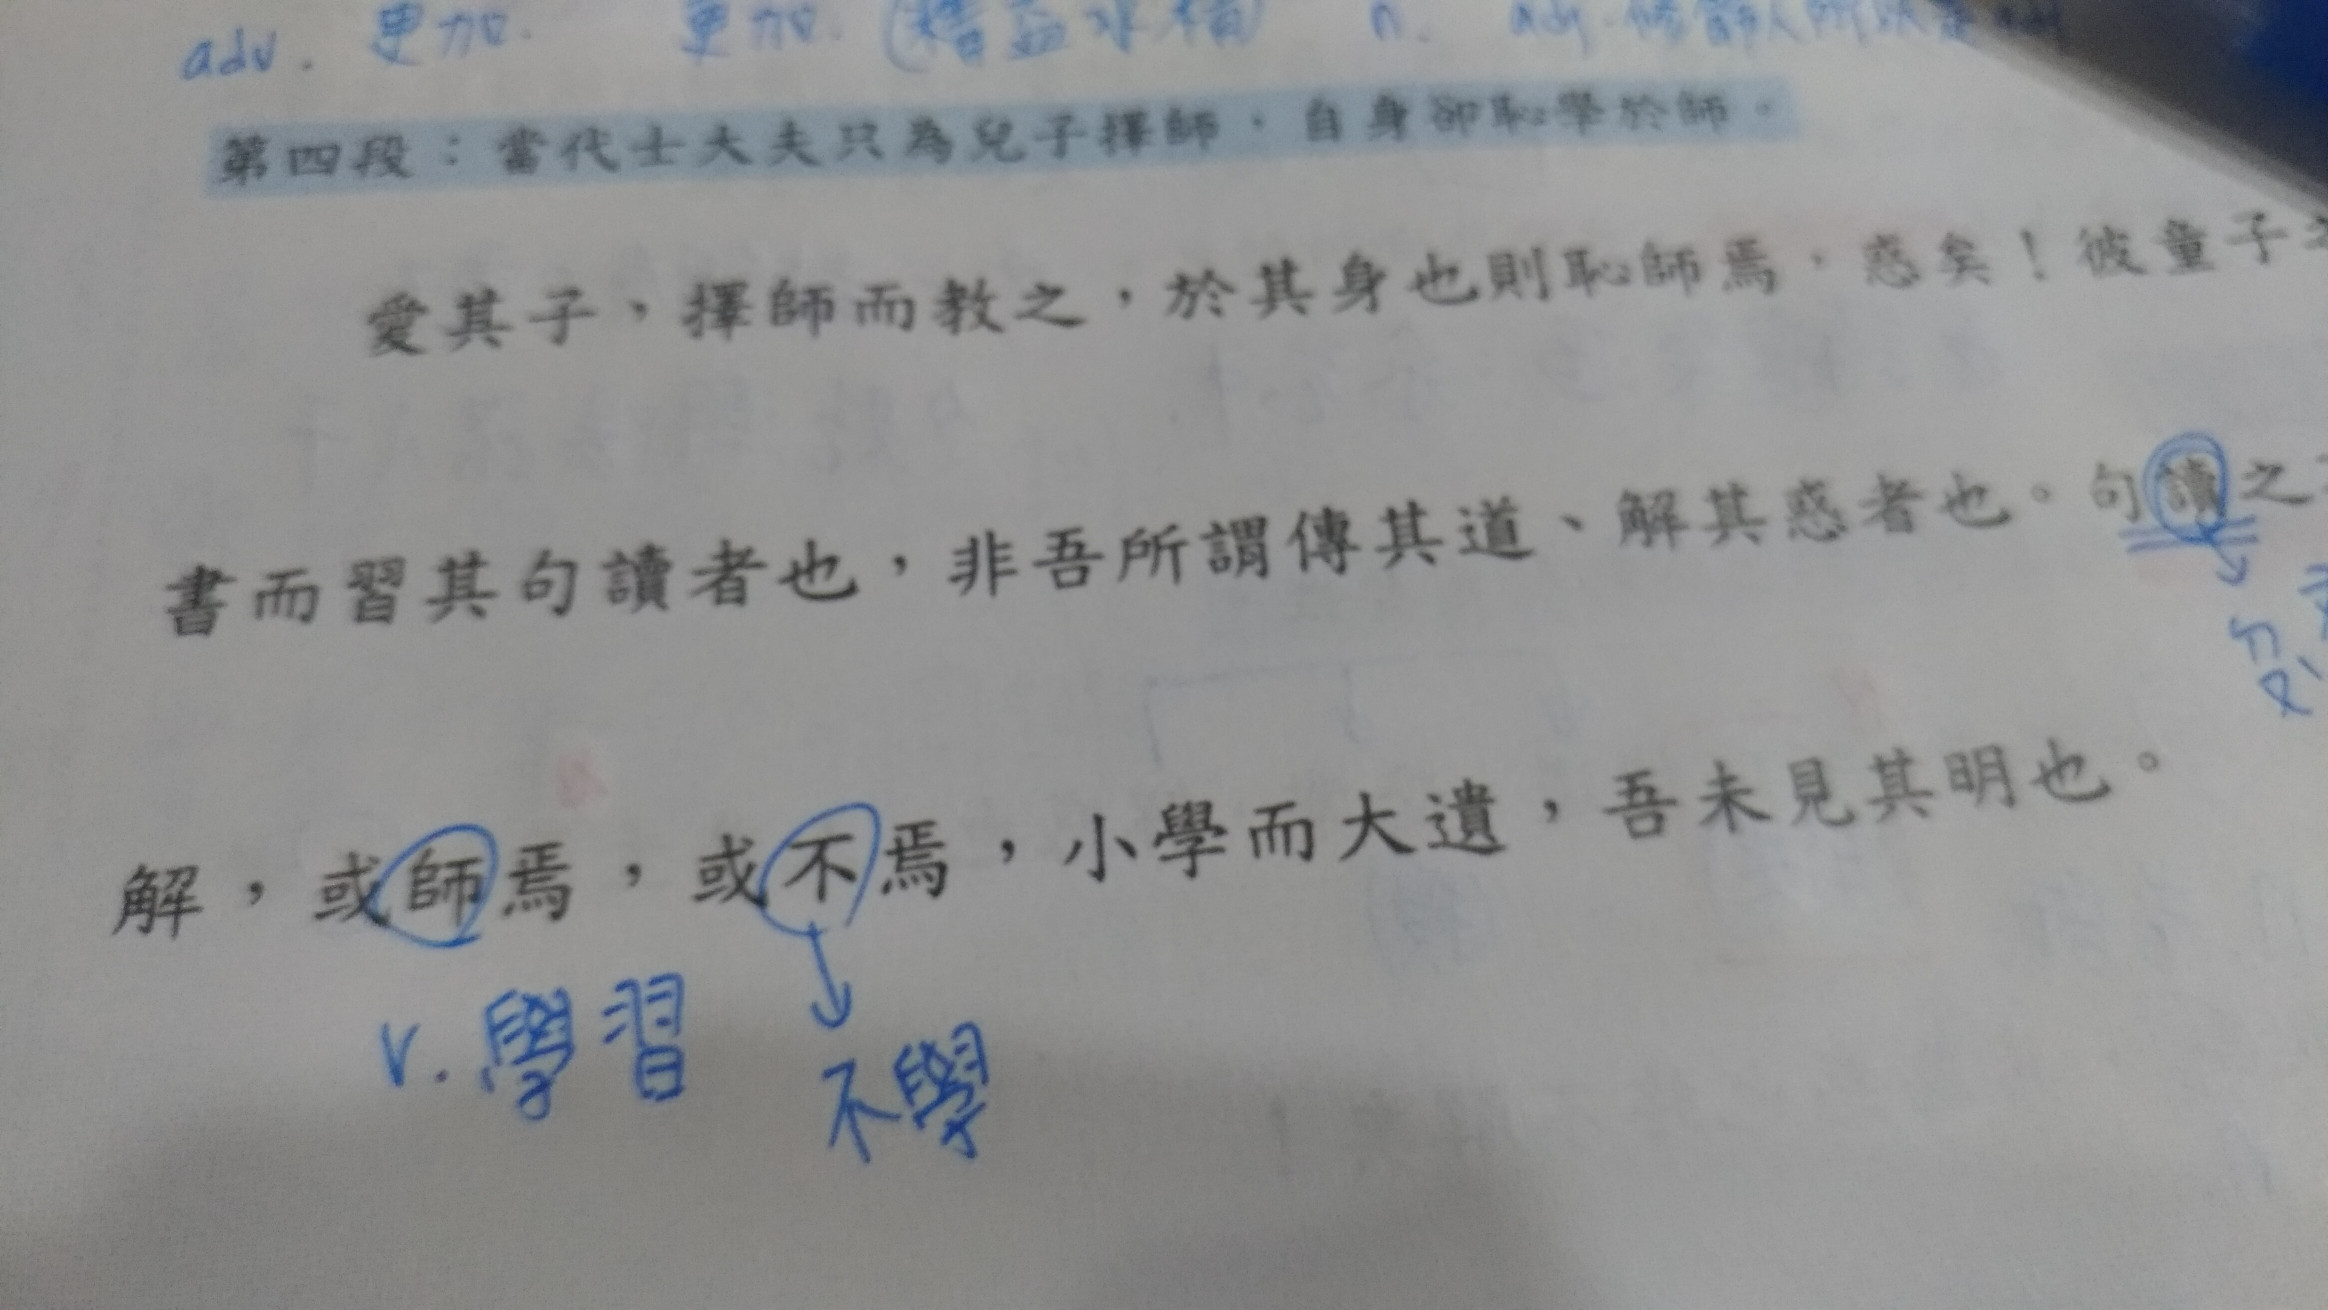 adv. 更加. 更加. n. adj.
第四段：當代士大夫只為兒子擇師，自身卻恥學於師。
愛其子，擇師而教之，於其身也則恥師焉，惑矣！彼童子
書而習其句讀者也，非吾所謂傳其道、解其惑者也。句讀之
ㄉㄡˋ
解，或師焉，或不焉，小學而大遺，吾未見其明也。
v. 學習
不學